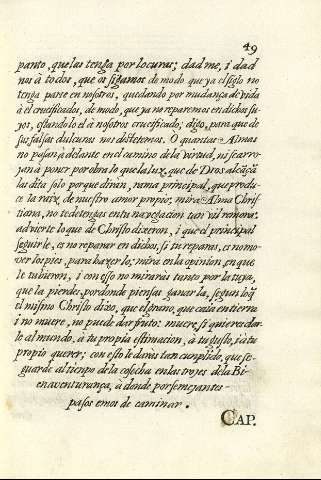 49
panto, que las tenga por locuras; dadme, i dad
nos à todos, que os sigamos de modo que ya el siglo no
tenga parte en nosotros, quedando por mudança de vida
à el crucificados, de modo, que ya no reparemos en dichos su
yos, estando lo el à nosotros crucificado; digo, para que de
sus falsas dulçuras nos destetemos. O quantas Almas
no pasan à delante en el camino de la virtud, ni se arro-
jan à poner por obra lo que la luz, que de Dios alcãçã
las dita solo porque diran, rama principal, que produ-
ce la raiz, de nuestro amor propio; mira Alma Chris-
tiana, no te detengas en tu navegacion tan vil remora:
advierte lo que de Christo dixeron, i que el principal
seguirle, es no reparar en dichos, si tu reparas, es no mo-
ver los pies, para hazerlo; mira en la opinion, en que
le tubieron, i con eso no miraràs tanto por la tuya,
que la pierdes, por donde piensas ganarla, segun loq̃
el mismo Christo dixo, que el grano, que cae en tierra
i no muere, no puede dar fruto: muere, si quieres dar
le al mundo, à tu propia estimacion, à tu gusto, i à tu
propio querer; con esto le daràs tan cumplido, que se-
guarde al tienpo de la cosecha en las trojes de la Bi-
enaventurança, à donde por semejantes-
pasos emos de caminar.
CAP.